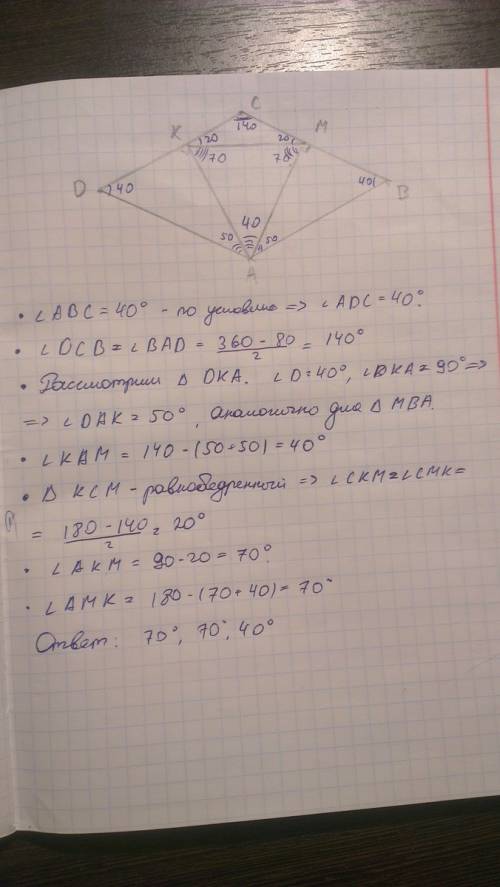 C
140
K
20
20
M
70
70
D
40
40
B
40
50
50
A
• ∠ABC = 40° - по условию => ∠ADC = 40°.
• ∠DCB = ∠BAD = (360 - 80)/2 = 140°
• Рассмотрим Δ DKA. ∠D = 40°, ∠DKA = 90° =>
=> ∠DAK = 50°, Аналогично для Δ MBA.
• ∠KAM = 140 - (50+50) = 40°
• Δ KCM - равнобедренный => ∠CKM = ∠CMK =
= (180 - 140)/2 = 20°
• ∠AKM = 90 - 20 = 70°
• ∠AMK = 180 - (70 + 40) = 70°
Ответ: 70°, 70°, 40°